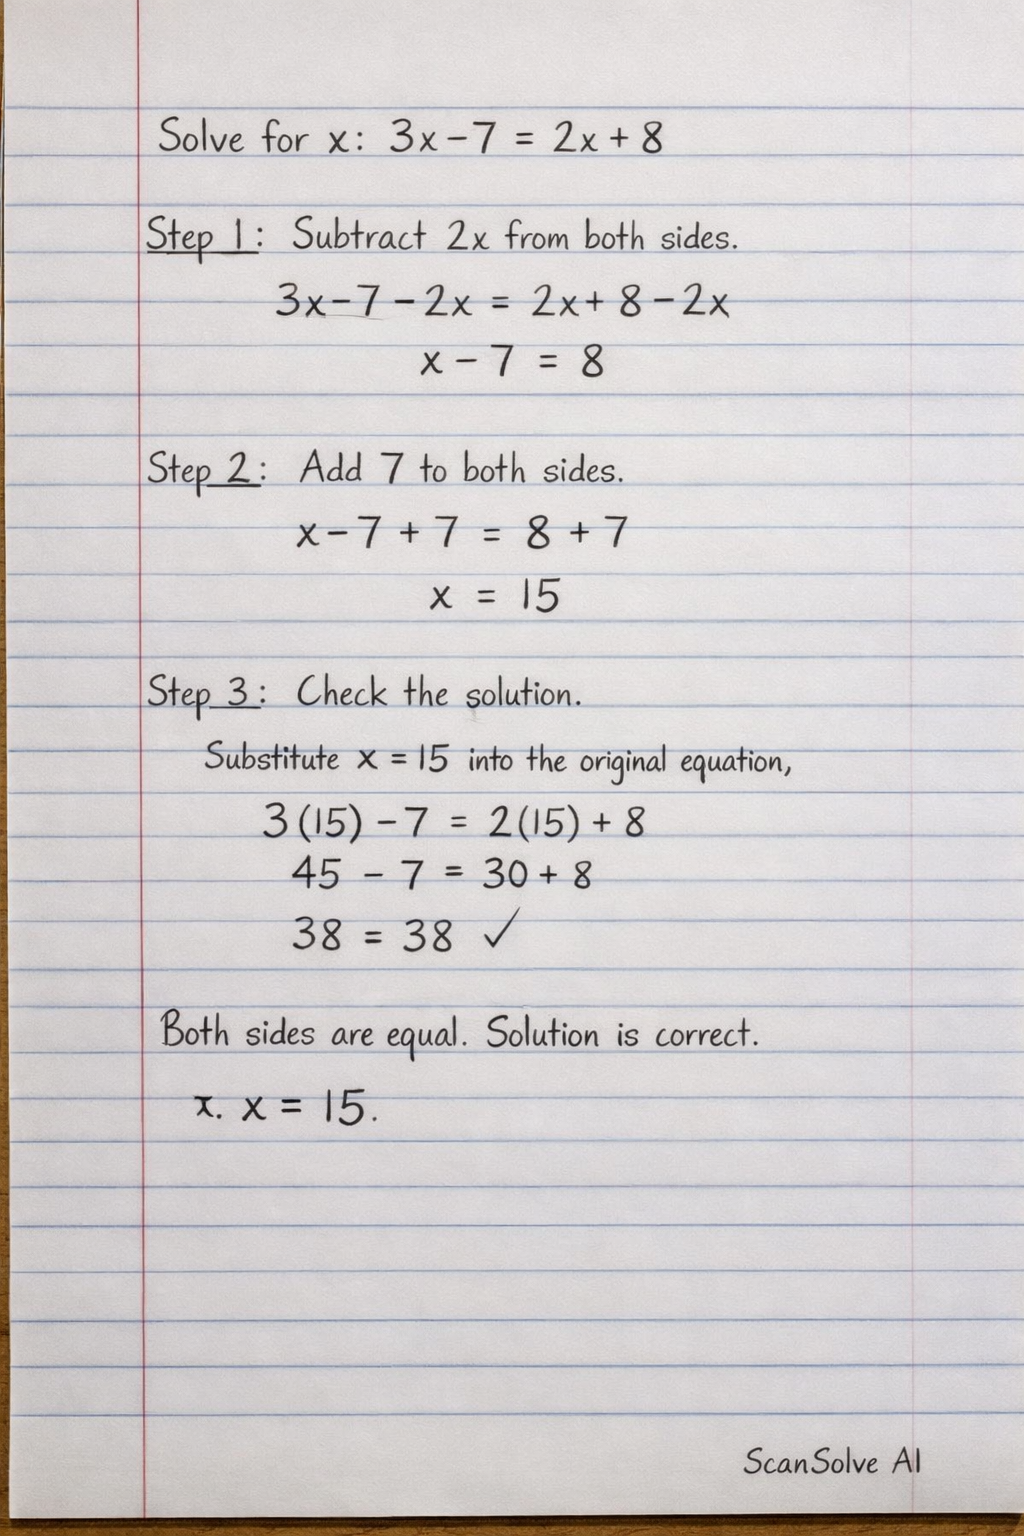 Solve for x: 3x-7 = 2x + 8
Step 1: Subtract 2x from both sides.
3x-7-2x = 2x+ 8-2x
x-7 = 8
Step 2: Add 7 to both sides.
x-7 + 7 = 8 + 7
x = 15
Step 3: Check the solution.
Substitute x = 15 into the original equation,
3(15) - 7 = 2(15) + 8
45 - 7 = 30 + 8
38 = 38 ✓
Both sides are equal. Solution is correct.
x. x = 15.
ScanSolve AI